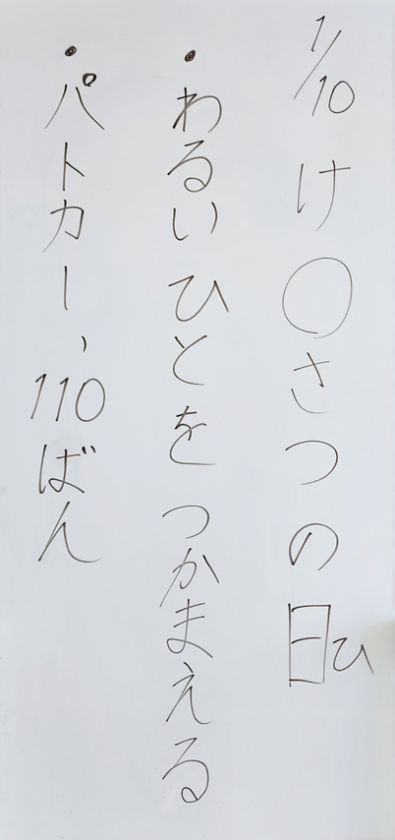 1/10 け○さつの日ひ
・わるいひとをつかまえる
・パトカー、110ばん